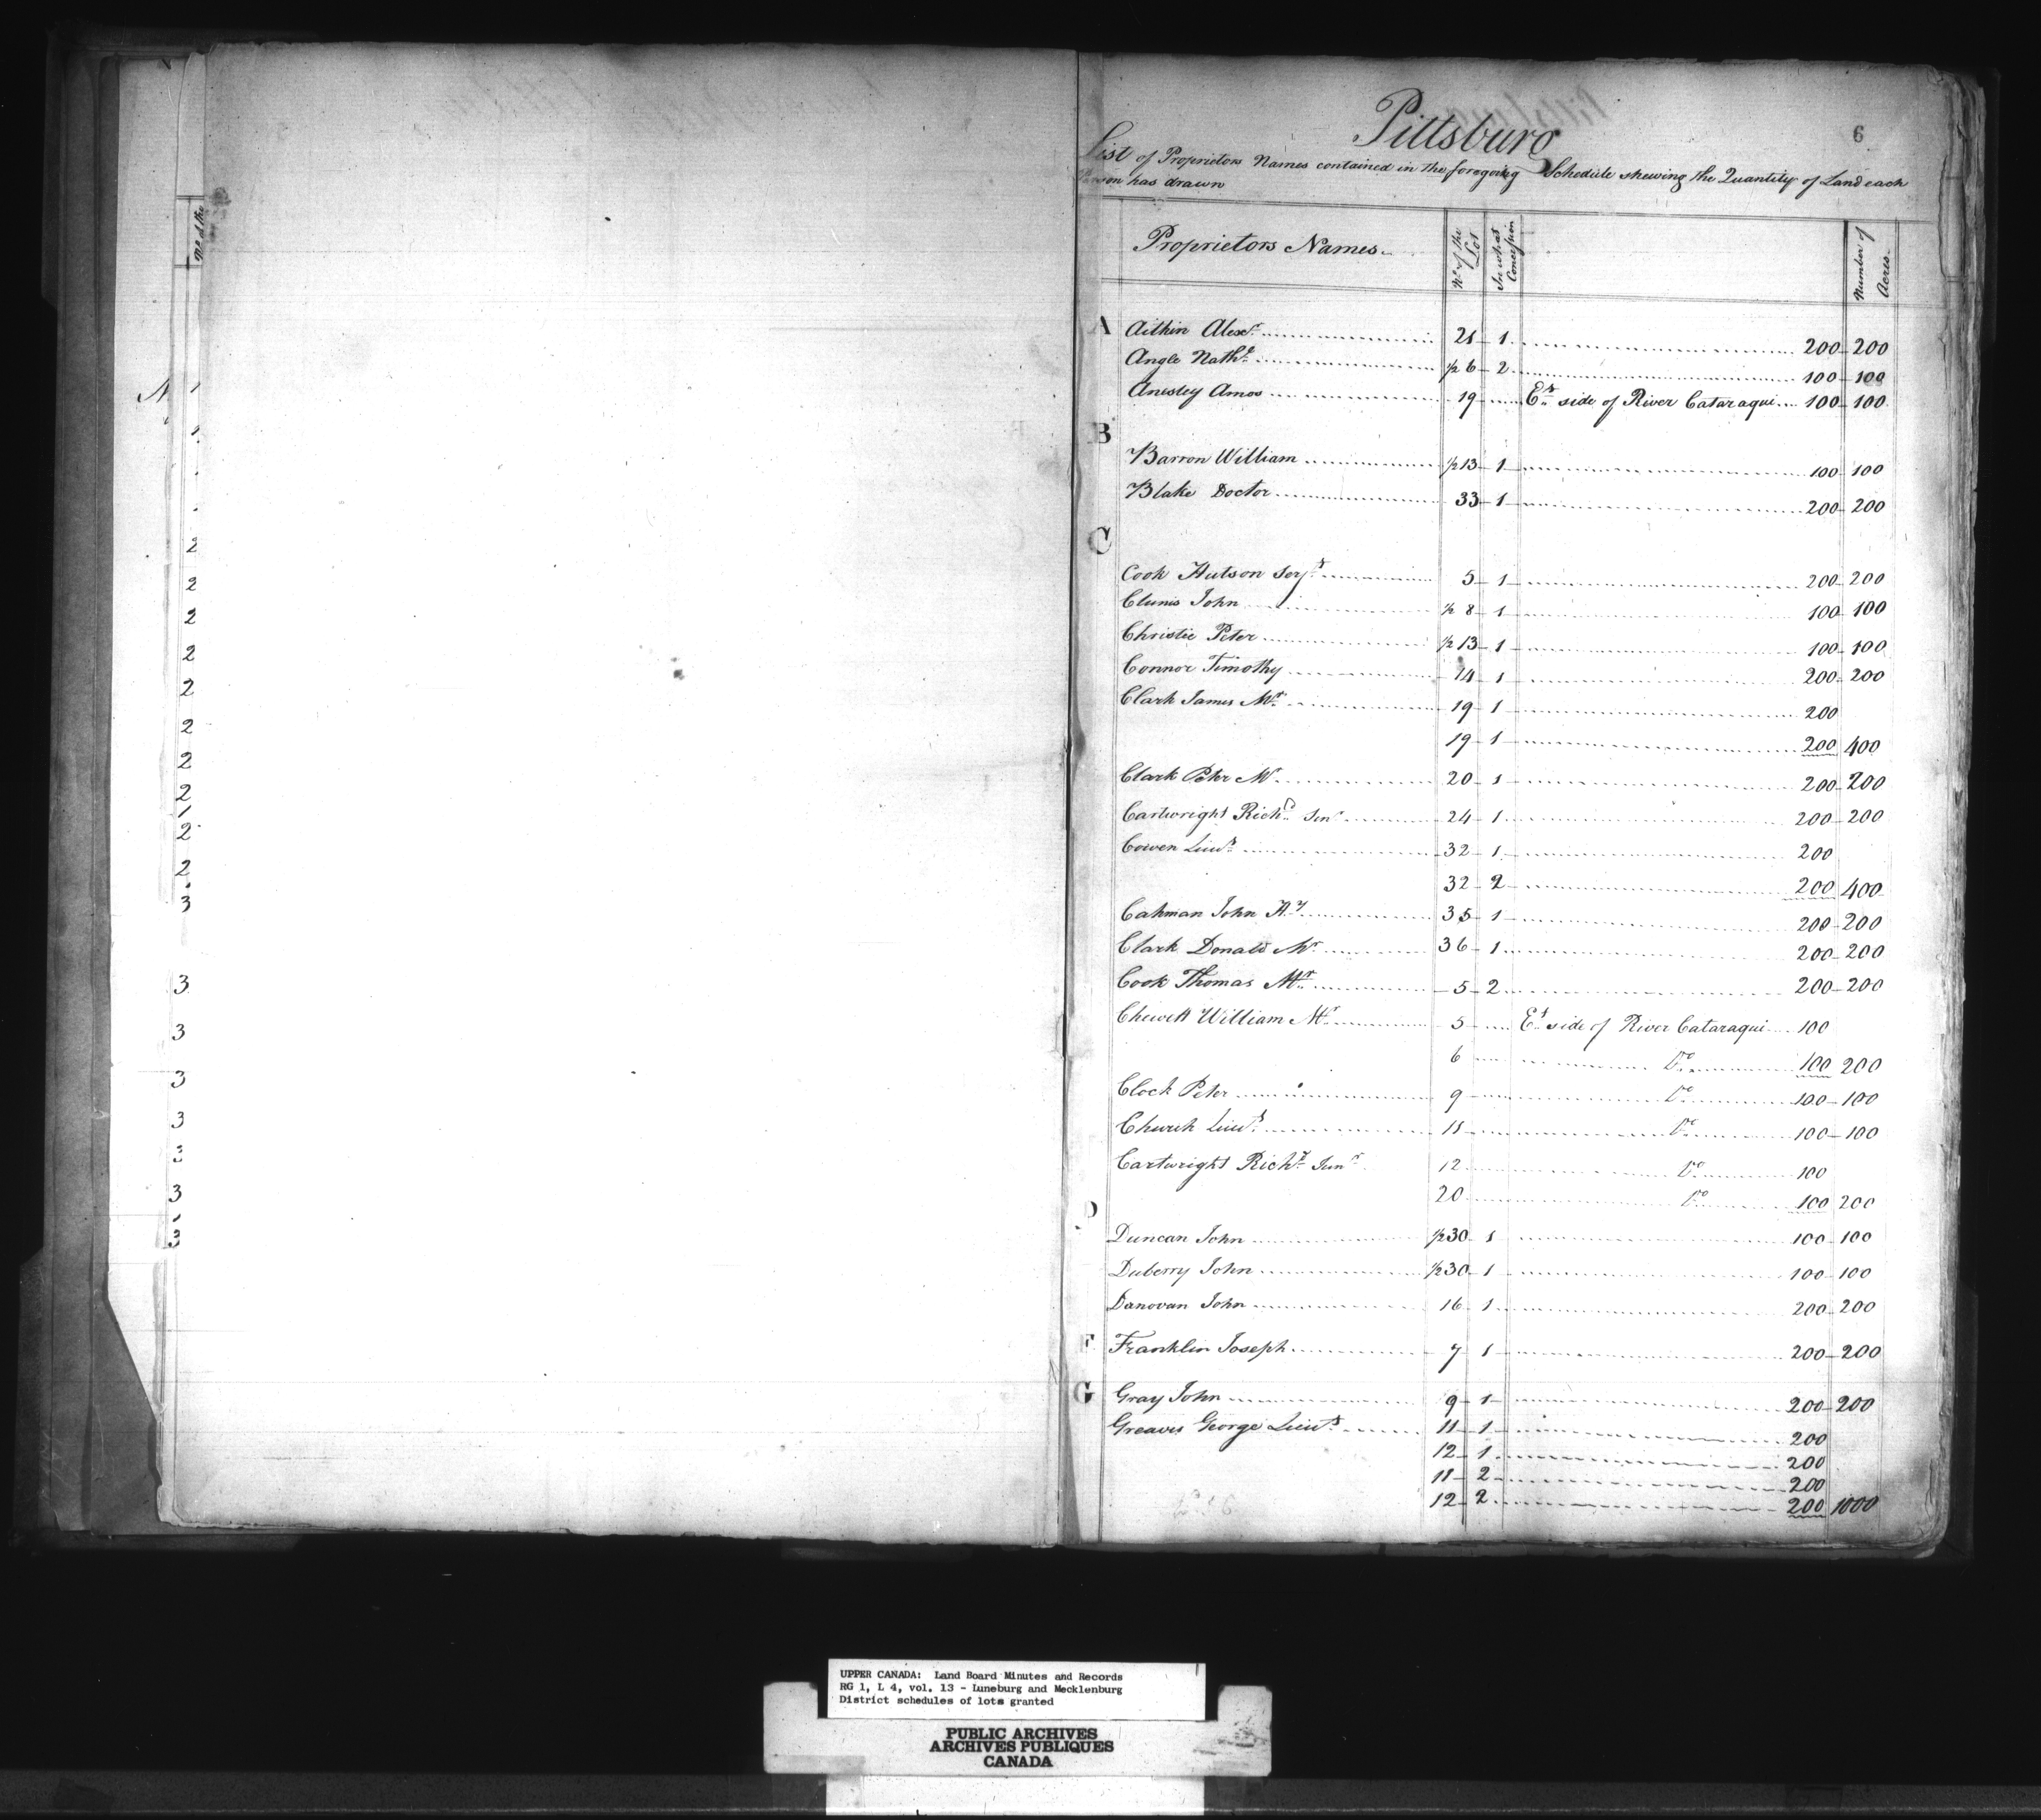 6
Pittsburg
List of Proprietors Names contained in the foregoing Schedule shewing the Quantity of Land each
Person has drawn
Proprietors Names
No. of the Lot
In what Concession
Number of Acres
A Aitkin Alexr. 21 1 200 200
Angle Nathl. 1/2 6 2 100 100
Anesley Amos 19 Et. side of River Cataraqui 100 100
B
Barron William 1/2 13 1 100 100
Blake Doctor 33 1 200 200
C
Cook Hutson Serjt. 5 1 200 200
Clunis John 1/2 8 1 100 100
Christie Peter 1/2 13 1 100 100
Connor Timothy 14 1 200 200
Clark James Mr. 19 1 200
19 1 200 400
Clark Peter Mr. 20 1 200 200
Cartwright Richd. Senr. 24 1 200 200
Cowen Lieut. 32 1 200
32 2 200 400
Cahman John 35 1 200 200
Clark Donald Mr. 36 1 200 200
Cook Thomas Mr. 5 2 200 200
Chewett William Mr. 5 Et. side of River Cataraqui 100
6 Do. 100 200
Clock Peter 9 Do. 100 100
Church Lieut. 11 Do. 100 100
Cartwright Richd. Junr. 12 Do. 100
20 Do. 100 200
D
Duncan John 1/2 30 1 100 100
Duberry John 1/2 30 1 100 100
Danovan John 16 1 200 200
F Franklin Joseph 7 1 200 200
G Gray John 9 1 200 200
Greaves George Lieut. 11 1 200
12 1 200
11 2 200
12 2 200 1000
UPPER CANADA: Land Board Minutes and Records
RG 1, L 4, vol. 13 - Luneburg and Mecklenburg
District schedules of lots granted
PUBLIC ARCHIVES
ARCHIVES PUBLIQUES
CANADA